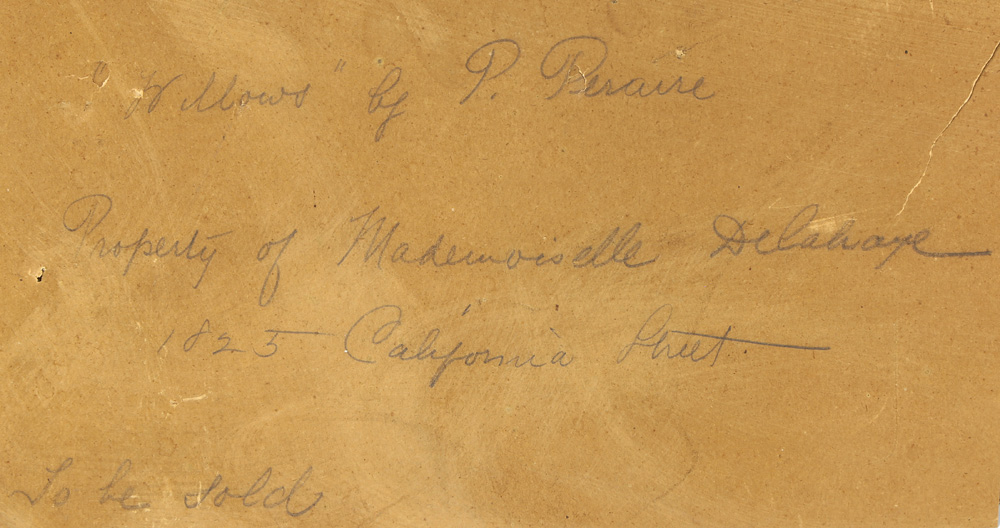 "Willows" by P. Peraire
Property of Mademoiselle Delahaye
1825 California Street
To be sold